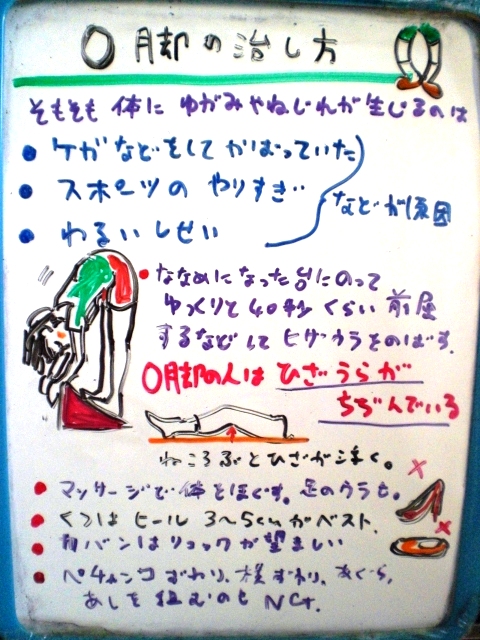 O脚の治し方
そもそも 体に ゆがみやねじれが生じるのは
● ケガなどをして かばっていた
● スポーツの やりすぎ
● わるいしせい
などが原因
● ななめになった台にのって
ゆっくりと40秒くらい 前屈
するなどして ヒザウラをのばす。
O脚の人は ひざうらが
ちぢんでいる
ねころぶとひざが浮く。
● マッサージで体をほぐす。足のうらも。
● くつは ヒール 3〜5cmがベスト.
● カバンはリュックが望ましい
● ペチャンコずわり、横ずわり、あぐら、
あしを組むのも NG.